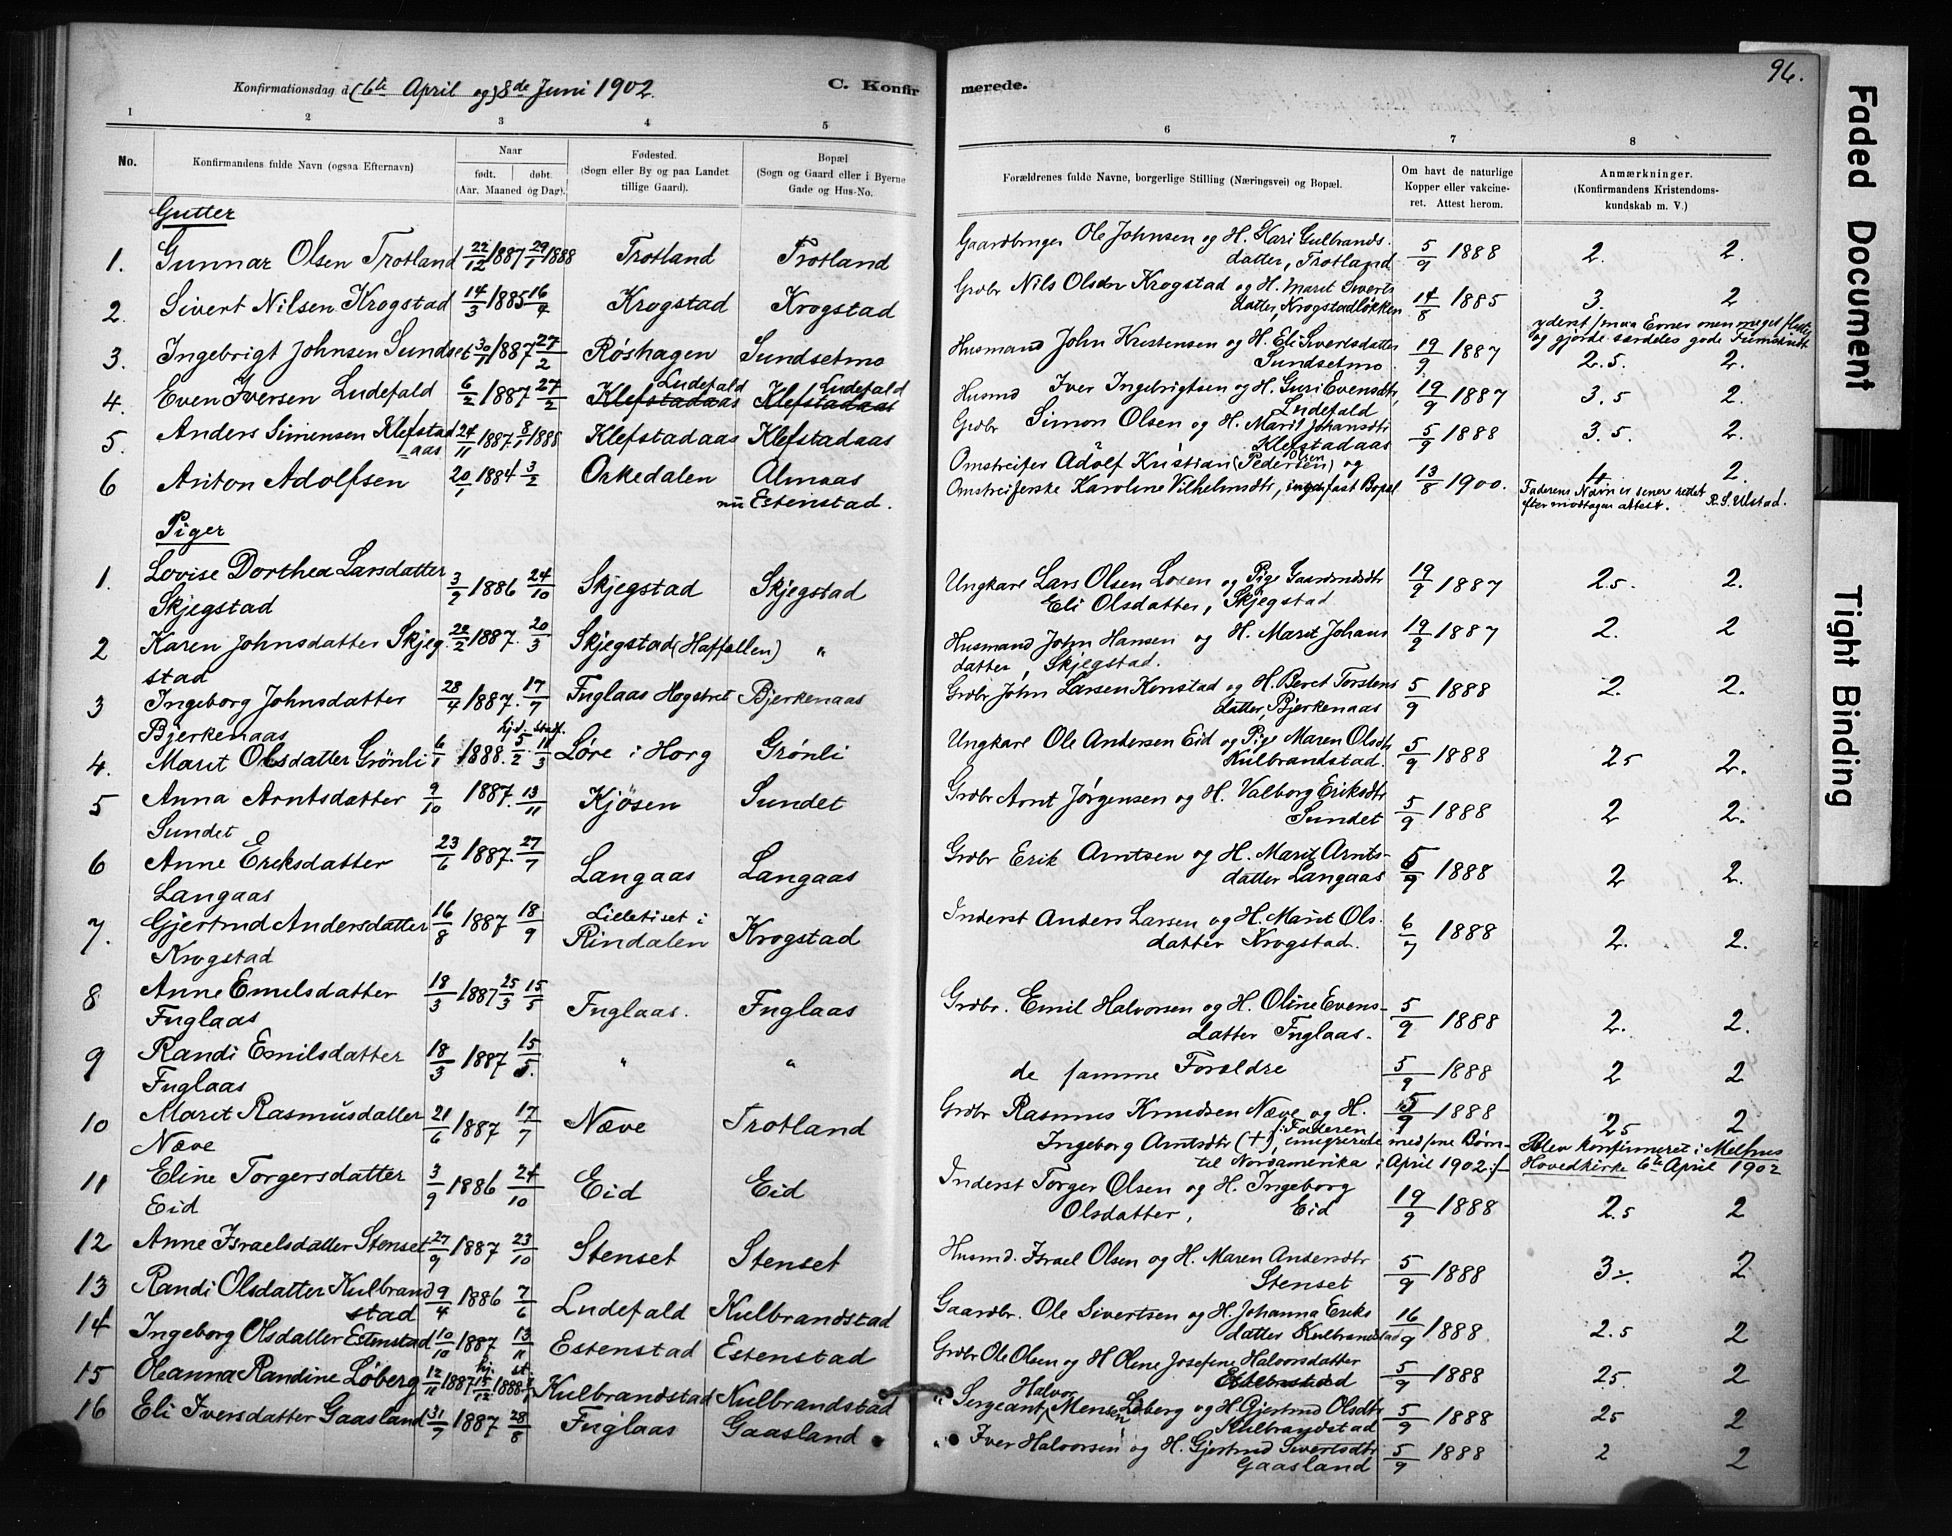 96.
Konfirmationsdag d. (6te April og) 8de Juni 1902. C. Konfirmerede.
1 2 3 4 5 6 7 8
No. Konfirmandens fulde Navn (ogsaa Efternavn) Naar født. døbt. (Aar. Maaned og Dag). Fødested. (Sogn eller By og paa Landet tillige Gaard). Bopæl (Sogn og Gaard eller i Byerne Gade og Hus-No. Forældrenes fulde Navne, borgerlige Stilling (Næringsvei) og Bopæl. Om havt de naturlige Kopper eller vakcineret. Attest herom. Anmærkninger. (Konfirmandens Kristendomskundskab m. V.)
Gutter
1. Gunnar Olsen Trotland 22/12 1887 29/1 1888 Trotland Trotland Gaardbruger Ole Johnsen og H. Kari Gulbrandsdatter, Trotland 5/9 1888 2. 2.
2. Sivert Nilsen Krogstad 14/3 1885 16/4 Krogstad Krogstad Grdbr Nils Olsen Krogstad og H. Marit Siverts datter, Krogstadløkken 14/8 1885 3. 2
3. Ingebrigt Johnsen Sundset 30/11 1887 27/2 Røshagen Sundsetmo Husmand John Kristensen og H. Eli Sivertsdatter Sundsetmo 19/9 1887 2.5. 2.
4. Even Iversen Ludefald 6/2 1887 27/2 Klefstadaas Ludefald Klefstadaas Ludefald Husmd Iver Ingebrigtsen og H. Guri Evensdtr, Ludefald 19/9 1887 3.5 2.
5. Anders Simensen Klefstadaas 24/11 1887. 8/1 1888 Klefstadaas Klefstadaas Grdbr Simon Olsen og H. Marit Johansdtr Klefstadaas 5/9 1888 3.5. 2.
6 Anton Adolfsen 20/1 1884 3/2 Orkedalen Almaas nu Estenstad. Omstreifer Adolf Kristian (Pedersen) Olsen og Omstreiferske Karoline Vilhelmsdtr, fast Bopæl 13/8 1900. 4. 2.
Faderens Navn er senere rettet efter modtagen attest. R. S. Ulstad.
Piger
1. Lovise Dorthea Larsdatter Skjegstad 3/2 1886 24/10 Skjegstad Skjegstad Ungkarl Lars Olsen Losen og Pige Gaardmdsdtr Eli Olsdatter, Skjegstad 19/9 1887 2.5. 2.
2 Karen Johnsdatter Skjegstad 20/2 1887. 20/3 Skjegstad (Haffellen) " Husmand John Hansen og H. Marit Johans datter, Skjegstad. 19/9 1887 2. 2
3 Ingeborg Johnsdatter Bjerkenaas 28/4 1887. 17/7 Fuglaas Hogstret Bjerkenaas Grdbr John Larsen Kenstad og H. Beret Torstens datter, Bjerkenaas 5/9 1888 2. 2.
4. Marit Olsdatter Grönli 6/1 1888. hjd. 5/2 stadf. 11/3 Løre i Horg Grønli Ungkarl Ole Andersen Eid og Pige Maren Olsdtr Kulbrandstad. 5/9 1888 25 2.
5 Anna Arntsdatter Sundet 9/10 1887. 13/11 Kjösen Sundet Grdbr Arnt Jørgensen og H. Valborg Eriksdtr Sundet 5/9 1888 2 2.
6 Anne Eriksdatter Langaas 23/6 1887. 27/7 Langaas Langaas Grdbr Erik Arntsen og H. Marit Arntsdatter Langaas 5/9 1888 2 2.
7. Gjertrud Andersdatter Krogstad 16/8 1887 18/9 Lilletiset i Rindalen Krogstad Inderst Anders Larsen og H. Marit Olsdatter Krogstad. 6/7 1888 2. 2.
8 Anne Emilsdatter Fuglaas 18/3 1887 25/3 15/5 Fuglaas. Fuglaas Grdbr. Emil Halvorsen og H. Oline Evensdatter Fuglaas. 5/9 1888 2. 2.
9 Randi Emilsdatter Fuglaas 18/3 1887 15/5. " " de samme Forældre 5/9 1888 2 2
10 Marit Rasmusdatter Næve 21/6 1887 17/7 Næve Trotland Grdbr Rasmus Knudsen Næve og H. Ingeborg Arntsdtr (+), /: Faderen emigrerede med sine Børn til Nordamerika i April 1902 :/ 5/9 1888 25 2
Blev konfirmeret i Melhus Hovedkirke 6te April 1902
11 Eline Torgersdatter Eid 3/9 1886 24/10 Eid Eid Inderst Torger Olsen og H. Ingeborg Olsdatter, Eid 19/9 1888 2.5 2
12 Anne Israelsdatter Stenset 27/9 1887 23/10 Stenset Stenset Husmd. Israel Olsen og H. Maren Andersdtr Stenset 5/9 1888 3÷ 2
13 Randi Olsdatter Kulbrandstad 9/4 1886 7/6 Ludefald Kulbrandstad Gaardbr. Ole Sivertsen og H. Johanna Eriks datter Kulbrandstad 16/9 1888. 2.5 2
14 Ingeborg Olsdatter Estenstad 10/10 1887 13/11 Estenstad Estenstad Grdbr Ole Olsen og H Oline Josefine Halvorsdatter Estenstad 5/9 1888 25. 2
15 Oleanna Randine Løberg 12/11 1887 hj. 15/12 st. 1888 Kulbrandstad Kulbrandstad " Sergeant Halvor Mensen Løberg og H. Gjertrud Olsdtr Kulbrandstad 5/9 1888 25 2
16 Eli Iversdatter Gaasland 31/7 1887 28/8 Fuglaas Gaasland " Iver Halvorsen og H. Gjertrud Sivertsdtr Gaasland 5/9 1888 2 2
Faded Document
Tight Binding